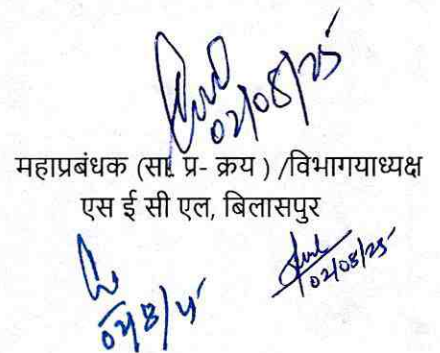 02/08/25
महाप्रबंधक (सा. प्र- क्रय ) /विभागयाध्यक्ष
एस ई सी एल, बिलासपुर
02/8/25
02/08/25